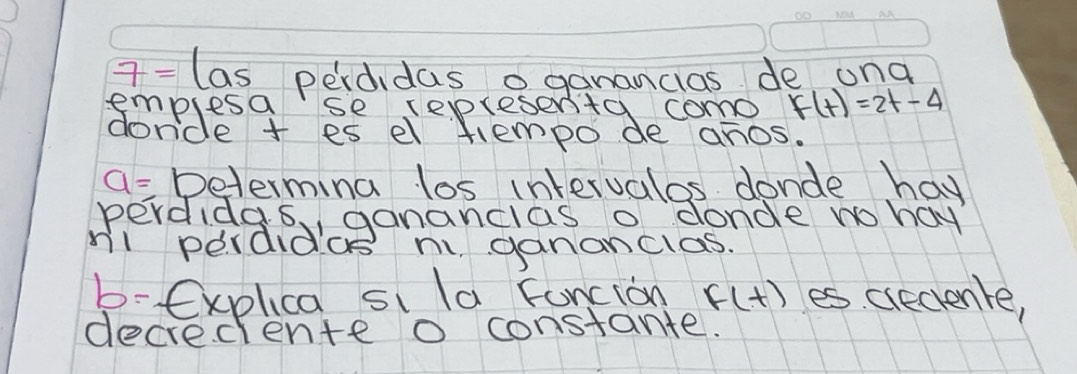 DD MM AA
7= las pérdidas o ganancias de una
empresa se representa como F(t)=2t-4
donde t es el tiempo de años.
a= Determina los intervalos donde hay
pérdidas, ganancias o donde no hay
ni pérdidas ni ganancias.
b= Explica si la función F(t) es creciente,
decreciente o constante.